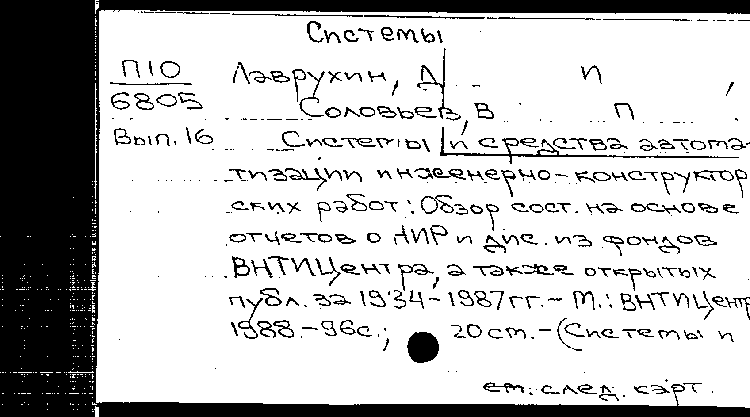 Системы
П10 Лаврухин, Д И
6805 Соловьев, В П
Вып. 16 Системы и средства автома-
тизации инженерно-конструктор
ских работ: Обзор сост. на основе
отчетов о НИР и дис. из фондов
ВНТИЦентра, а также открытых
публ. за 1934-1987 гг. - М.: ВНТИЦентр
1988. - 96с.; 20 см. - (Системы и
см. след. карт.